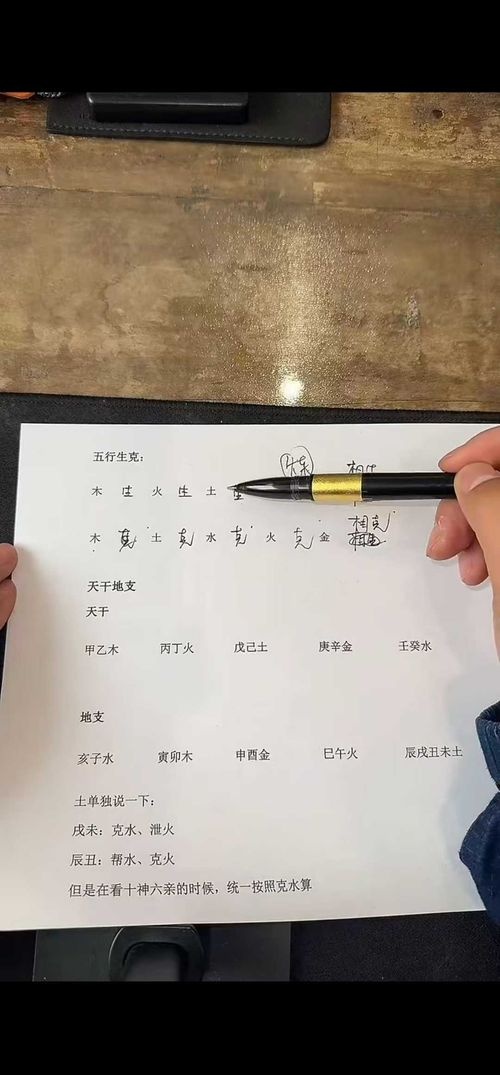 五行生克：
木 生 火 生 土 生
相生
木 克 土 克 水 克 火 克 金 相克
天干地支
天干
甲乙木 丙丁火 戊己土 庚辛金 壬癸水
地支
亥子水 寅卯木 申酉金 巳午火 辰戌丑未土
土单独说一下：
戌未：克水、泄火
辰丑：帮水、克火
但是在看十神六亲的时候，统一按照克水算